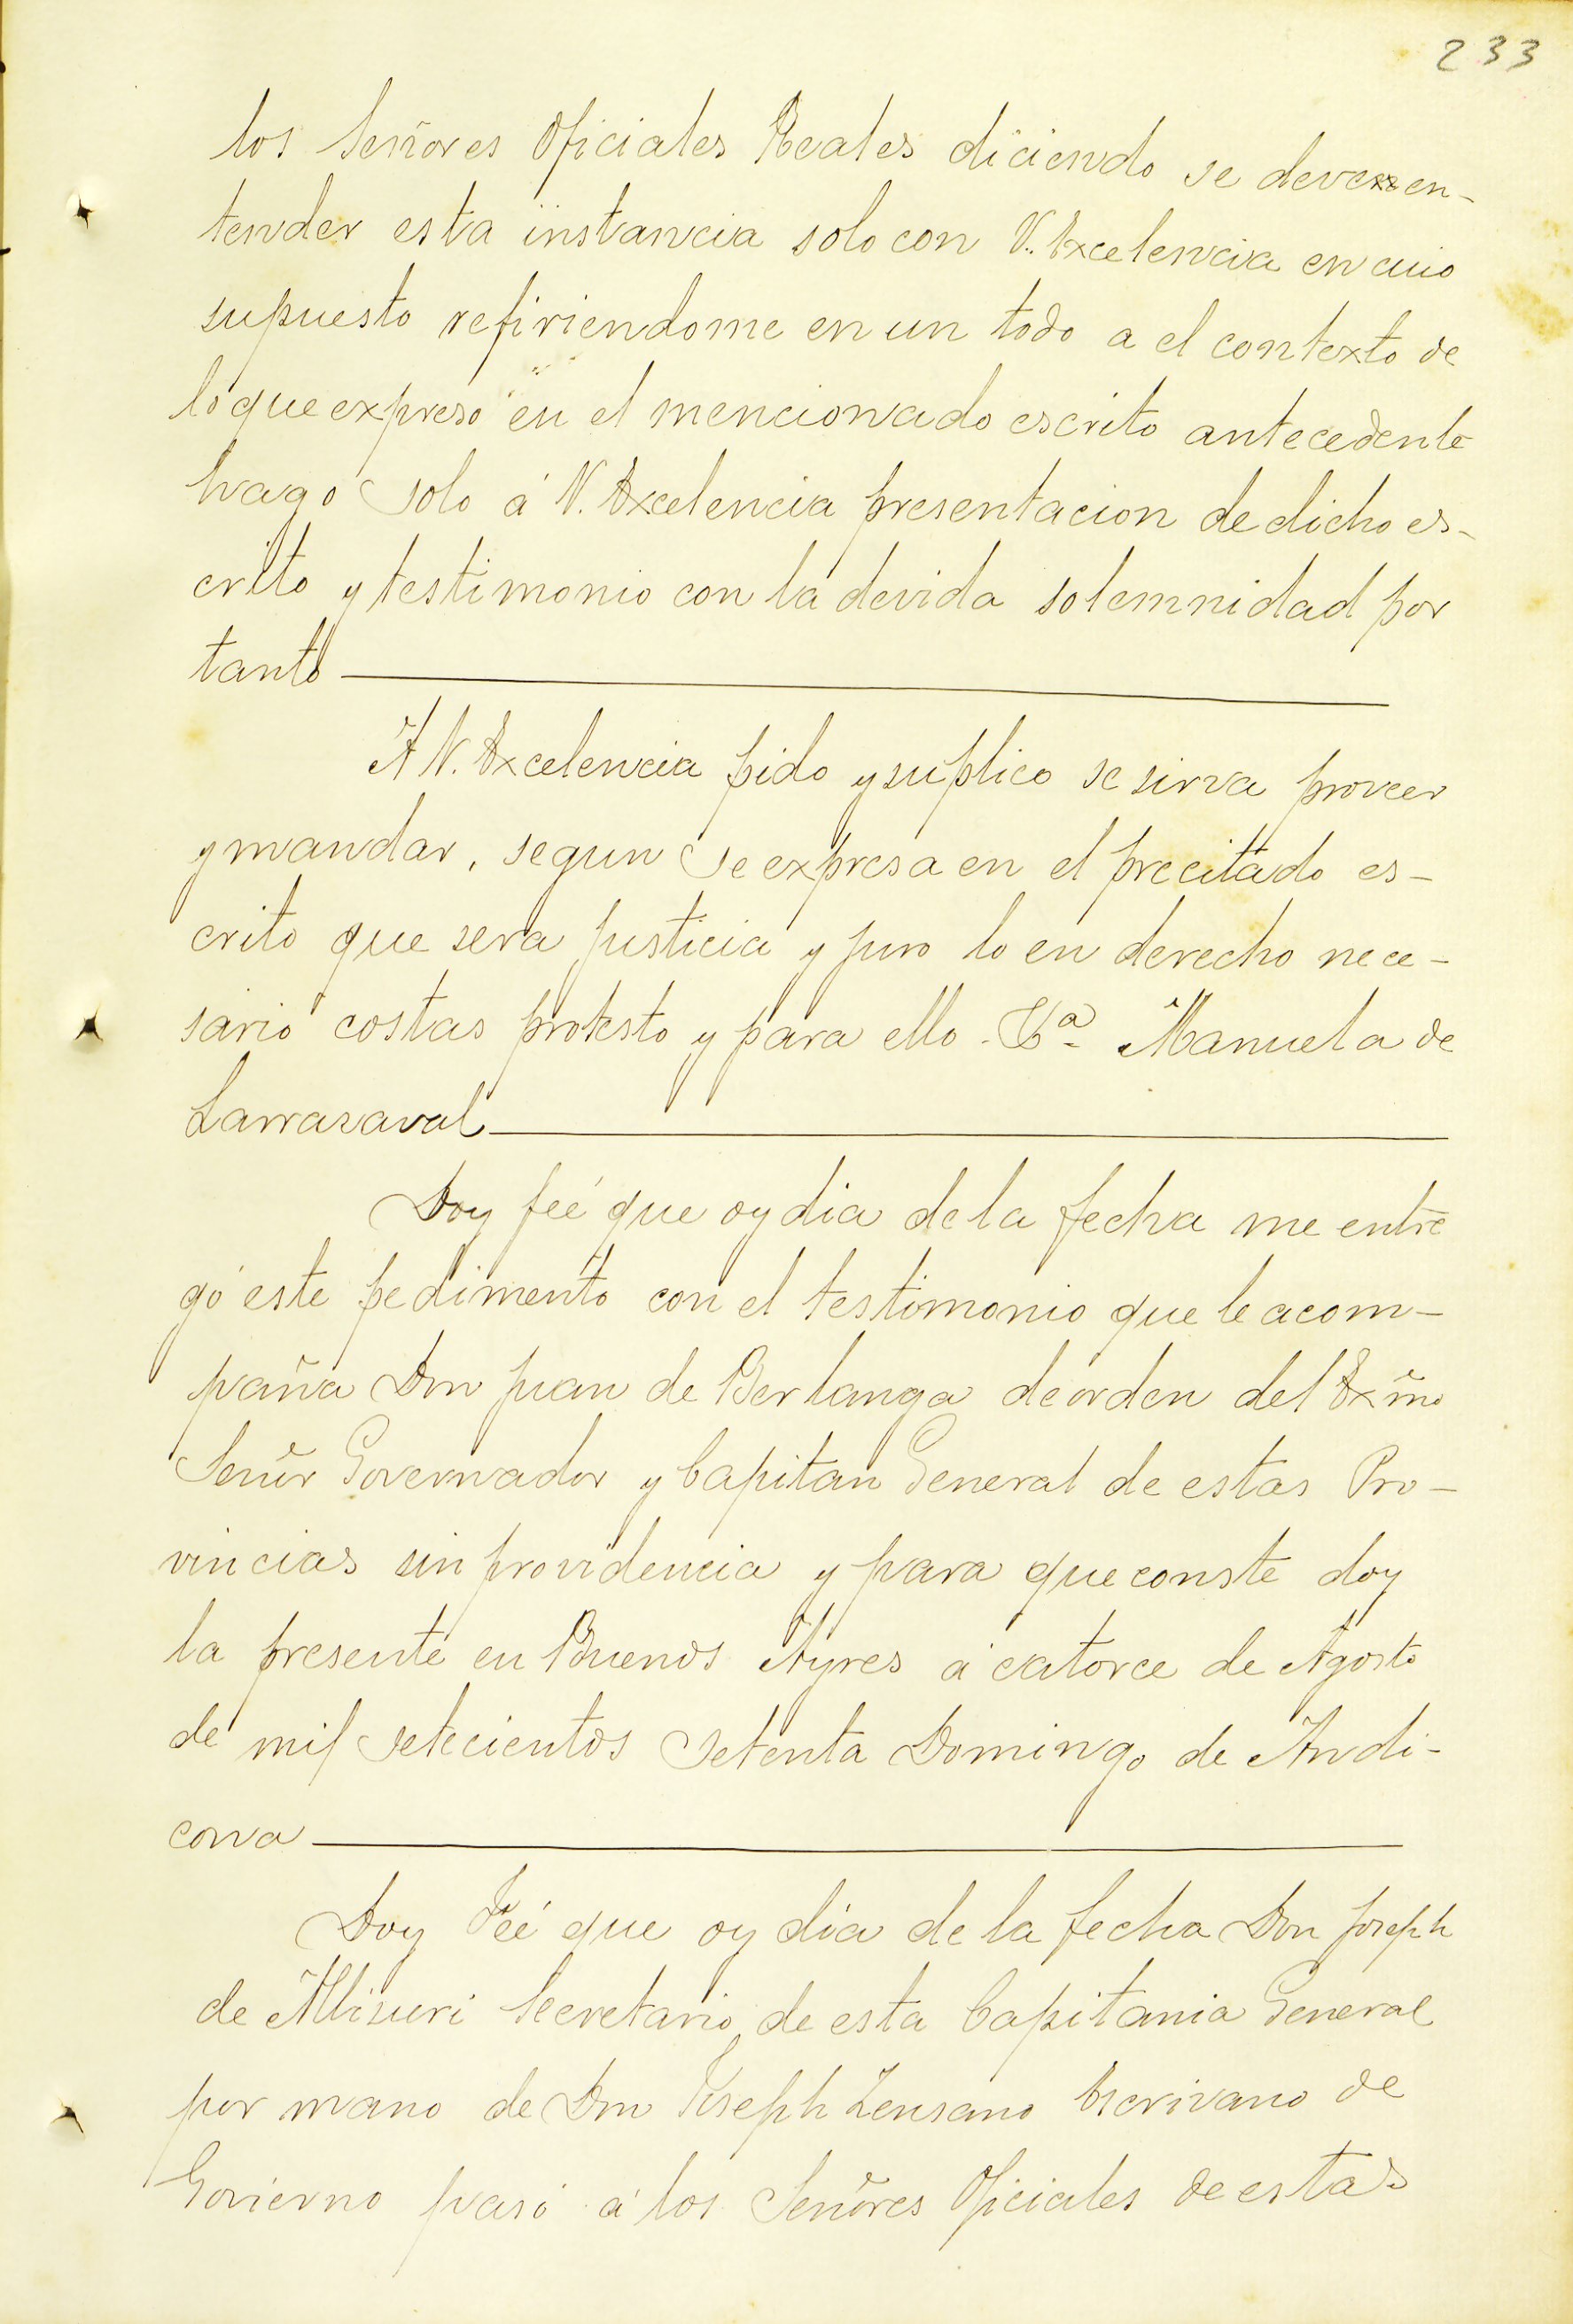 233
los Señores Oficiales Reales diciendo se deve en-
tender esta instancia solo con V. Excelencia en cuio
supuesto refiriendome en un todo a el contexto de
lo que expreso en el mencionado escrito antecedente
hago solo á V. Excelencia presentacion de dicho es-
crito y testimonio con la devida solemnidad por
tanto
A V. Excelencia pido y suplico se sirva proveer
y mandar, segun se expresa en el precitado es-
crito que sera justicia y juro lo en derecho nece-
sario costas protesto y para ello. Manuela de
Larrazaval
Doy feé que oy dia de la fecha me entre
gó este pedimento con el testimonio que le acom-
paña Don Juan de Berlanga de orden del Exmo
Señor Governador y Capitan General de estas Pro-
vincias sin providencia y para que conste doy
la presente en Buenos Ayres á catorce de Agosto
de mil setecientos setenta Domingo de Andi-
cona
Doy Feé que oy dia de la fecha Don Joseph
de Albizuri Secretario de esta Capitania General
por mano de Don Joseph Zenzano Escrivano de
Govierno pasó á los Señores Oficiales de estas